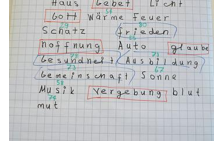 Haus Gebet Licht
Gott Wärme Feuer
Schatz frieden
Hoffnung Auto glaube
Gesundheit Ausbildung
Gemeinschaft Sonne
Musik vergebung blut
mut